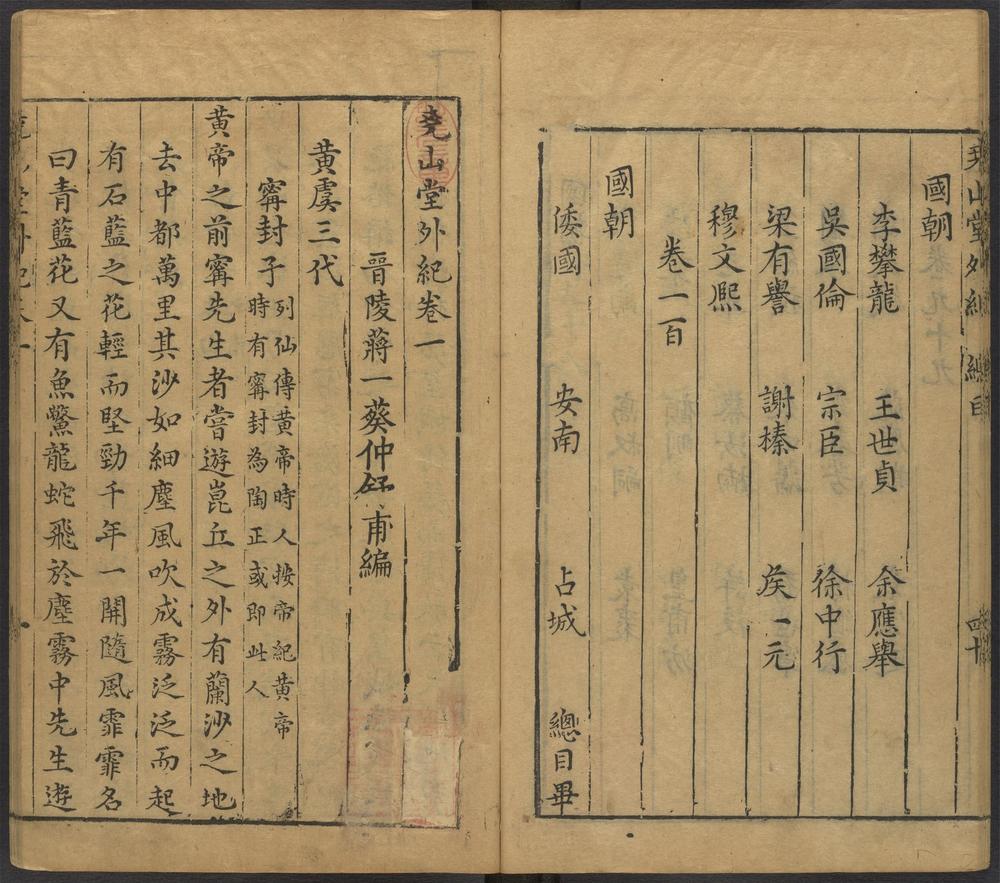 堯山堂外紀 總目 四十
國朝
李攀龍 王世貞 余應舉
吳國倫 宗臣 徐中行
梁有譽 謝榛 矦一元
穆文熈
卷一百
國朝
倭國 安南 占城 總目畢
堯山堂外紀卷一
晉陵蔣一葵仲舒甫編
黃虞三代
甯封子列仙傳黃帝時人按帝紀黃帝
時有甯封為陶正或即此人
黃帝之前甯先生者嘗遊崑丘之外有蘭沙之地
去中都萬里其沙如細塵風吹成霧泛泛而起
有石藍之花輕而堅勁千年一開隨風霏霏名
曰青藍花又有魚鱉龍蛇飛於塵霧中先生遊